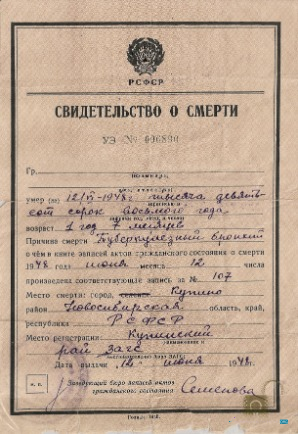 РСФСР
СВИДЕТЕЛЬСТВО О СМЕРТИ
УЭ № 006830
Гр.
умер (ла) 12/VI-1948г тысяча девять
сот сорок восьмого года
возраст 1 год 7 месяцев
Причина смерти Туберкулезный
о чём в книге записей актов гражданского состояния о смерти
1948 года июня месяца 12 числа
произведена соответствующая запись за № 107
Место смерти: город, селение Купино
район Новосибирская область, край,
республика РСФСР
Место регистрации: Купинский
рай загс
Дата выдачи 12 июня 1948 г.
М. П.
Заведующий бюро записей актов
гражданского состояния Семенова